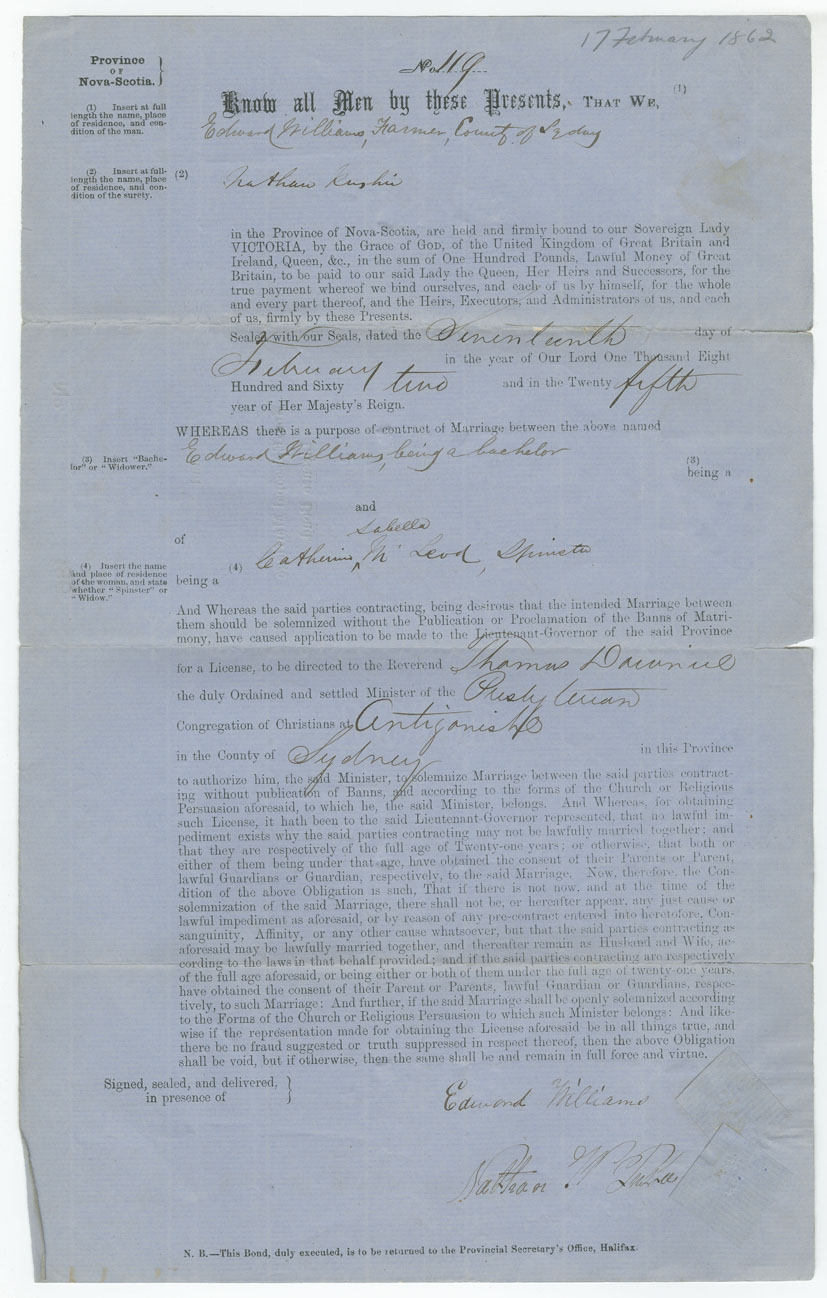 17 February 1862
Province
OF
Nova-Scotia.
No. 119
(1) Insert at full
length the name, place
of residence, and con-
dition of the man.
Know all Men by these Presents, THAT WE, (1)
Edward Williams, Farmer, County of Sydney
(2) Insert at full-
length the name, place
of residence, and con-
dition of the surety.
(2) Nathan
in the Province of Nova-Scotia, are held and firmly bound to our Sovereign Lady
VICTORIA, by the Grace of GOD, of the United Kingdom of Great Britain and
Ireland, Queen, &c., in the sum of One Hundred Pounds, Lawful Money of Great
Britain, to be paid to our said Lady the Queen, Her Heirs and Successors, for the
true payment whereof we bind ourselves, and each of us by himself, for the whole
and every part thereof, and the Heirs, Executors, and Administrators of us, and each
of us, firmly by these Presents.
Sealed with our Seals, dated the Seventeenth day of
February in the year of Our Lord One Thousand Eight
Hundred and Sixty two and in the Twenty fifth
year of Her Majesty's Reign.
WHEREAS there is a purpose of contract of Marriage between the above named
Edward Williams, being a bachelor
(3) Insert "Bache-
lor" or "Widower."
(3)
being a
and
of
Isabella
(4) Catherine Mc Leod, Spinster
(4) Insert the name
and place of residence
of the woman, and state
whether "Spinster" or
"Widow."
being a
And Whereas the said parties contracting, being desirous that the intended Marriage between
them should be solemnized without the Publication or Proclamation of the Banns of Matri-
mony, have caused application to be made to the Lieutenant-Governor of the said Province
for a License, to be directed to the Reverend Thomas Downie
the duly Ordained and settled Minister of the Presbyterian
Congregation of Christians at Antigonish
in the County of Sydney in this Province
to authorize him, the said Minister, to solemnize Marriage between the said parties contract-
ing without publication of Banns, and according to the forms of the Church or Religious
Persuasion aforesaid, to which he, the said Minister, belongs. And Whereas, for obtaining
such License, it hath been to the said Lieutenant-Governor represented, that no lawful im-
pediment exists why the said parties contracting may not be lawfully married together; and
that they are respectively of the full age of Twenty-one years; or otherwise, that both or
either of them being under that age, have obtained the consent of their Parents or Parent,
lawful Guardians or Guardian, respectively, to the said Marriage. Now, therefore, the Con-
dition of the above Obligation is such, That if there is not now, and at the time of the
solemnization of the said Marriage, there shall not be, or hereafter appear, any just cause or
lawful impediment as aforesaid, or by reason of any pre-contract entered into heretofore, Con-
sanguinity, Affinity, or any other cause whatsoever, but that the said parties contracting as
aforesaid may be lawfully married together, and thereafter remain as Husband and Wife, ac-
cording to the laws in that behalf provided; and if the said parties contracting are respectively
of the full age aforesaid, or being either or both of them under the full age of twenty-one years,
have obtained the consent of their Parent or Parents, lawful Guardian or Guardians, respec-
tively, to such Marriage: And further, if the said Marriage shall be openly solemnized according
to the Forms of the Church or Religious Persuasion to which such Minister belongs: And like-
wise if the representation made for obtaining the License aforesaid be in all things true, and
there be no fraud suggested or truth suppressed in respect thereof, then the above Obligation
shall be void, but if otherwise, then the same shall be and remain in full force and virtue.
Signed, sealed, and delivered,
in presence of
Edward Williams
Nathan
N. B.—This Bond, duly executed, is to be returned to the Provincial Secretary's Office, Halifax.